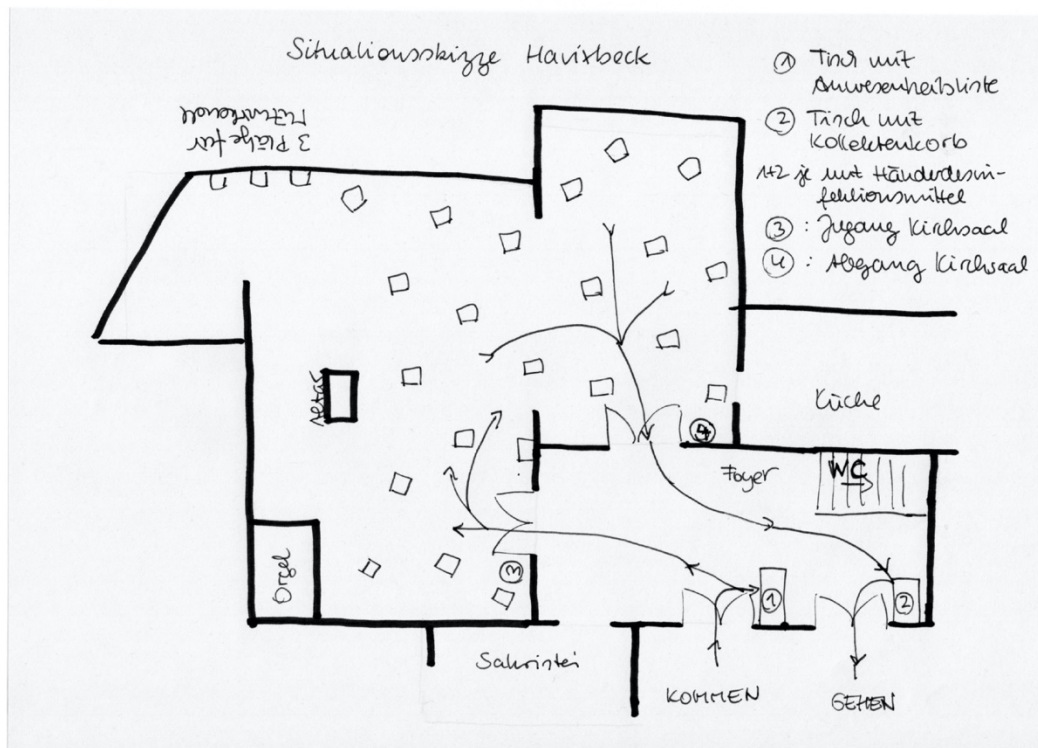 Situationsskizze Havixbeck
① Tisch mit
Anwesenheitsliste
② Tisch mit
Kollektenkorb
1+2 je mit Händedesin-
fektionsmittel
③ : Zugang Kirchsaal
④ : Abgang Kirchsaal
3 Plätze für
Mitwirkende
Altar
Küche
Foyer
WC
Orgel
③
④
①
②
Sakristei
KOMMEN
GEHEN